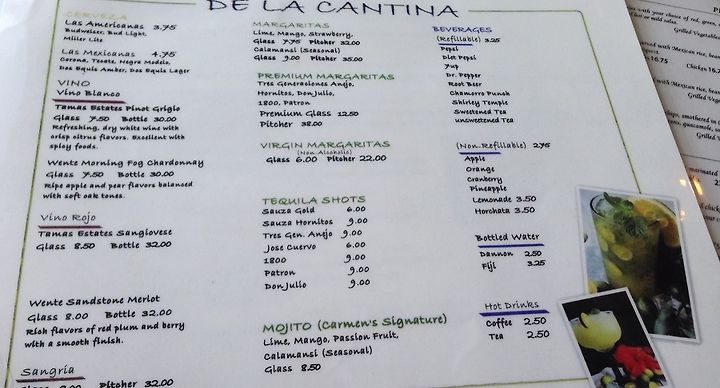 DE LA CANTINA
CERVEZA
Las Americanas 3.75
Budweiser, Bud Light,
Miller Lite
Las Mexicanas 4.75
Corona, Tecate, Negra Modelo,
Dos Equis Amber, Dos Equis Lager
VINO
Vino Blanco
Tamas Estates Pinot Grigio
Glass 7.50 Bottle 30.00
Refreshing, dry white wine with
crisp citrus flavors. Excellent with
spicy foods.
Wente Morning Fog Chardonnay
Glass 7.50 Bottle 30.00
Ripe apple and pear flavors balanced
with soft oak tones.
Vino Rojo
Tamas Estates Sangiovese
Glass 8.50 Bottle 32.00
Wente Sandstone Merlot
Glass 8.00 Bottle 32.00
Rich flavors of red plum and berry
with a smooth finish.
Sangria
Glass 8.00 Pitcher 32.00
MARGARITAS
Lime, Mango, Strawberry,
Glass 7.75 Pitcher 32.00
Calamansi (Seasonal)
Glass 9.00 Pitcher 35.00
PREMIUM MARGARITAS
Tres Generaciones Anejo,
Hornitos, Don Julio,
1800, Patron
Premium Glass 12.50
Pitcher 38.00
VIRGIN MARGARITAS
(Non-Alcoholic)
Glass 6.00 Pitcher 22.00
TEQUILA SHOTS
Sauza Gold 6.00
Sauza Hornitos 9.00
Tres Gen. Anejo 9.00
Jose Cuervo 6.00
1800 9.00
Patron 9.00
Don Julio 9.00
MOJITO (Carmen's Signature)
Lime, Mango, Passion Fruit,
Calamansi (Seasonal)
Glass 8.50
BEVERAGES
(Refillable) 3.25
Pepsi
Diet Pepsi
7up
Dr. Pepper
Root Beer
Chamorro Punch
Shirley Temple
Sweetened Tea
unsweetened Tea
(Non-Refillable) 2.75
Apple
Orange
Cranberry
Pineapple
Lemonade 3.50
Horchata 3.50
Bottled Water
Dannon 2.50
Fiji 3.25
Hot Drinks
Coffee 2.50
Tea 2.50
with your choice of red, green,
or mild salsa.
Grilled Vegetab
served with Mexican rice, bean
16.75 Chicken 16.7
with Mexican rice, bean
Grilled Veg
smothered in
guacamole,
Grilled V
marinated